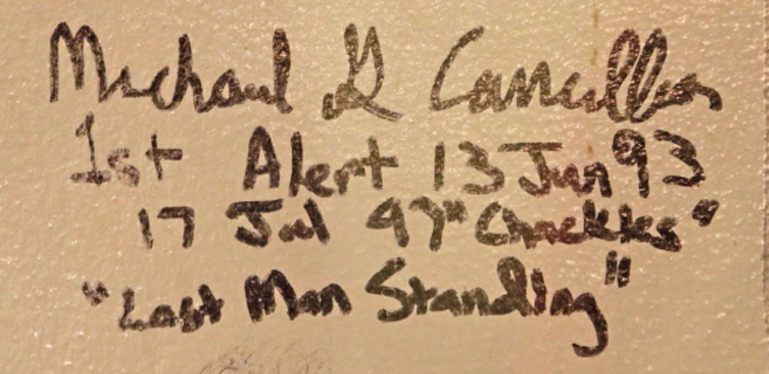 Michael G
1st Alert 13 Jun 93
17 Jul 97 "Chuckles"
"Last Man Standing"